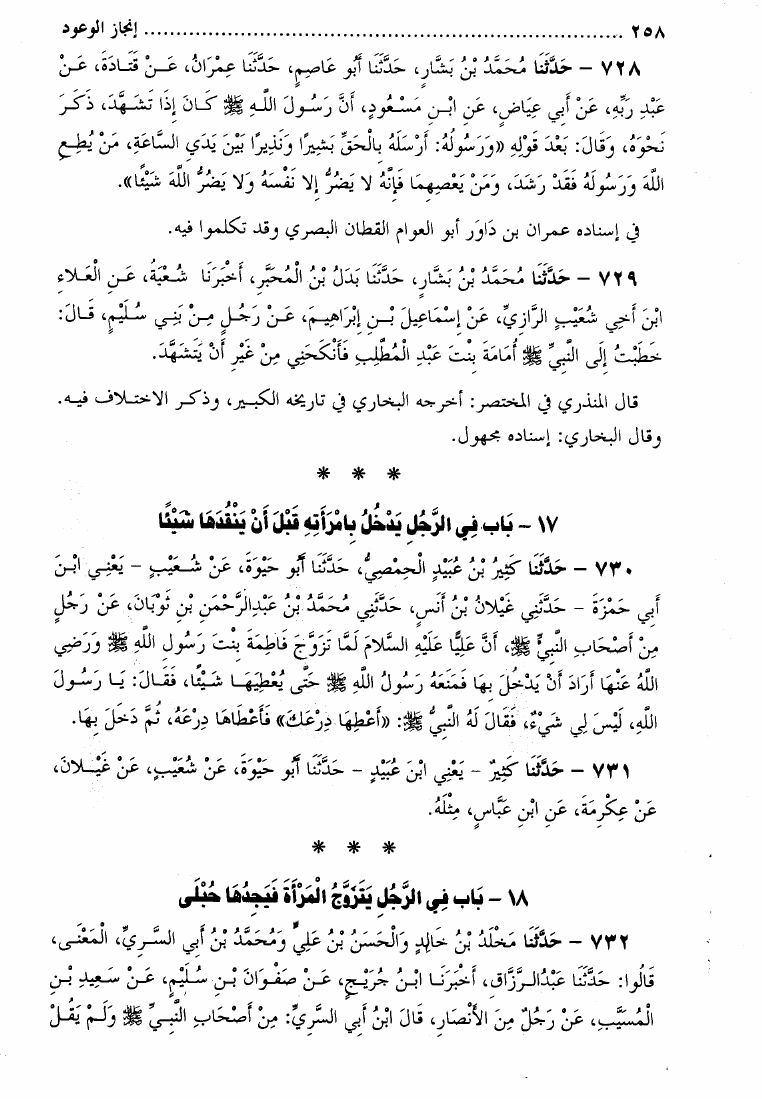 ٢٥٨ ........................................................................ إنجاز الوعود
٧٢٨ – حَدَّثَنَا مُحَمَّدُ بْنُ بَشَّارٍ، حَدَّثَنَا أَبُو عَاصِمٍ، حَدَّثَنَا عِمْرَانُ، عَـنْ قَتَـادَةَ، عَـنْ
عَبْدِ رَبِّهِ، عَنْ أَبِي عِيَاضٍ، عَنِ ابْـنِ مَسْعُودٍ، أَنَّ رَسُولَ اللَّـهِ ﷺ كَـانَ إِذَا تَشَهَّـدَ، ذَكَـرَ
نَحْوَهُ، وَقَالَ: بَعْدَ قَوْلِهِ «وَرَسُولُهُ: أَرْسَلَهُ بِالْحَقِّ بَشِيرًا وَنَذِيرًا بَيْنَ يَدَيِ السَّاعَةِ، مَنْ يُطِـعِ
اللَّهَ وَرَسُولَهُ فَقَدْ رَشَدَ، وَمَنْ يَعْصِهِمَا فَإِنَّهُ لا يَضُرُّ إِلا نَفْسَهُ وَلا يَضُرُّ اللَّهَ شَيْئًا».
في إسناده عمران بن دَاوَر أبو العوام القطان البصري وقد تكلموا فيه.
٧٢٩ – حَدَّثَنَا مُحَمَّدُ بْنُ بَشَّارٍ، حَدَّثَنَا بَدَلُ بْنُ الْمُحَبَّرِ، أَخْبَرَنَا شُعْبَةُ، عَـنِ الْعَـلاءِ
ابْنِ أَخِي شُعَيْبٍ الرَّازِيِّ، عَنْ إِسْمَاعِيلَ بْـنِ إِبْرَاهِيـمَ، عَـنْ رَجُـلٍ مِـنْ بَنِـي سُـلَيْمٍ، قَـالَ:
خَطَبْتُ إِلَى النَّبِيِّ ﷺ أُمَامَةَ بِنْتَ عَبْدِ الْمُطَّلِبِ فَأَنْكَحَنِي مِنْ غَيْرِ أَنْ يَتَشَهَّدَ.
قال المنذري في المختصر: أخرجه البخاري في تاريخه الكبير، وذكـر الاختـلاف فيـه.
وقال البخاري: إسناده مجهول.
* * *
١٧ – بَاب فِي الرَّجُلِ يَدْخُلُ بِامْرَأَتِهِ قَبْلَ أَنْ يَنْقُدَهَا شَيْئًا
٧٣٠ – حَدَّثَنَا كَثِيرُ بْنُ عُبَيْدٍ الْحِمْصِيُّ، حَدَّثَنَا أَبُو حَيْوَةَ، عَنْ شُـعَيْبٍ – يَعْنِي ابْـنَ
أَبِي حَمْزَةَ – حَدَّثَنِي غَيْلانُ بْنُ أَنَسٍ، حَدَّثَنِي مُحَمَّدُ بْنُ عَبْدِالرَّحْمَنِ بْنِ ثَوْبَانَ، عَنْ رَجُلٍ
مِنْ أَصْحَابِ النَّبِيِّ ﷺ، أَنَّ عَلِيًّا عَلَيْهِ السَّلامَ لَمَّا تَزَوَّجَ فَاطِمَةَ بِنْتَ رَسُولِ اللَّهِ ﷺ وَرَضِي
اللَّهُ عَنْهَا أَرَادَ أَنْ يَدْخُلَ بِهَا فَمَنَعَهُ رَسُولُ اللَّهِ ﷺ حَتَّى يُعْطِيَهَـا شَـيْئًا، فَقَـالَ: يَـا رَسُـولَ
اللَّهِ، لَيْسَ لِي شَيْءٌ، فَقَالَ لَهُ النَّبِيُّ ﷺ: «أَعْطِهَا دِرْعَكَ» فَأَعْطَاهَا دِرْعَهُ، ثُمَّ دَخَلَ بِهَا.
٧٣١ – حَدَّثَنَا كَثِيرٌ – يَعْنِي ابْنَ عُبَيْدٍ – حَدَّثَنَا أَبُو حَيْوَةَ، عَنْ شُعَيْبٍ، عَنْ غَيْـلانَ،
عَنْ عِكْرِمَةَ، عَنِ ابْنِ عَبَّاسٍ، مِثْلَهُ.
* * *
١٨ – بَاب فِي الرَّجُلِ يَتَزَوَّجُ الْمَرْأَةَ فَيَجِدُهَا حُبْلَى
٧٣٢ – حَدَّثَنَا مَخْلَدُ بْنُ خَالِدٍ وَالْحَسَنُ بْنُ عَلِيٍّ وَمُحَمَّدُ بْنُ أَبِي السَّـرِيِّ، الْمَعْنَـى،
قَالُوا: حَدَّثَنَا عَبْدُالـرَّزَّاقِ، أَخْبَرَنَـا ابْـنُ جُرَيْـجٍ، عَـنْ صَفْـوَانَ بْـنِ سُـلَيْمٍ، عَـنْ سَـعِيدِ بْـنِ
الْمُسَيَّبِ، عَنْ رَجُلٌ مِنَ الأَنْصَارِ، قَالَ ابْنُ أَبِي السَّرِيِّ: مِنْ أَصْحَابِ النَّبِـيِّ ﷺ وَلَـمْ يَقُـلْ